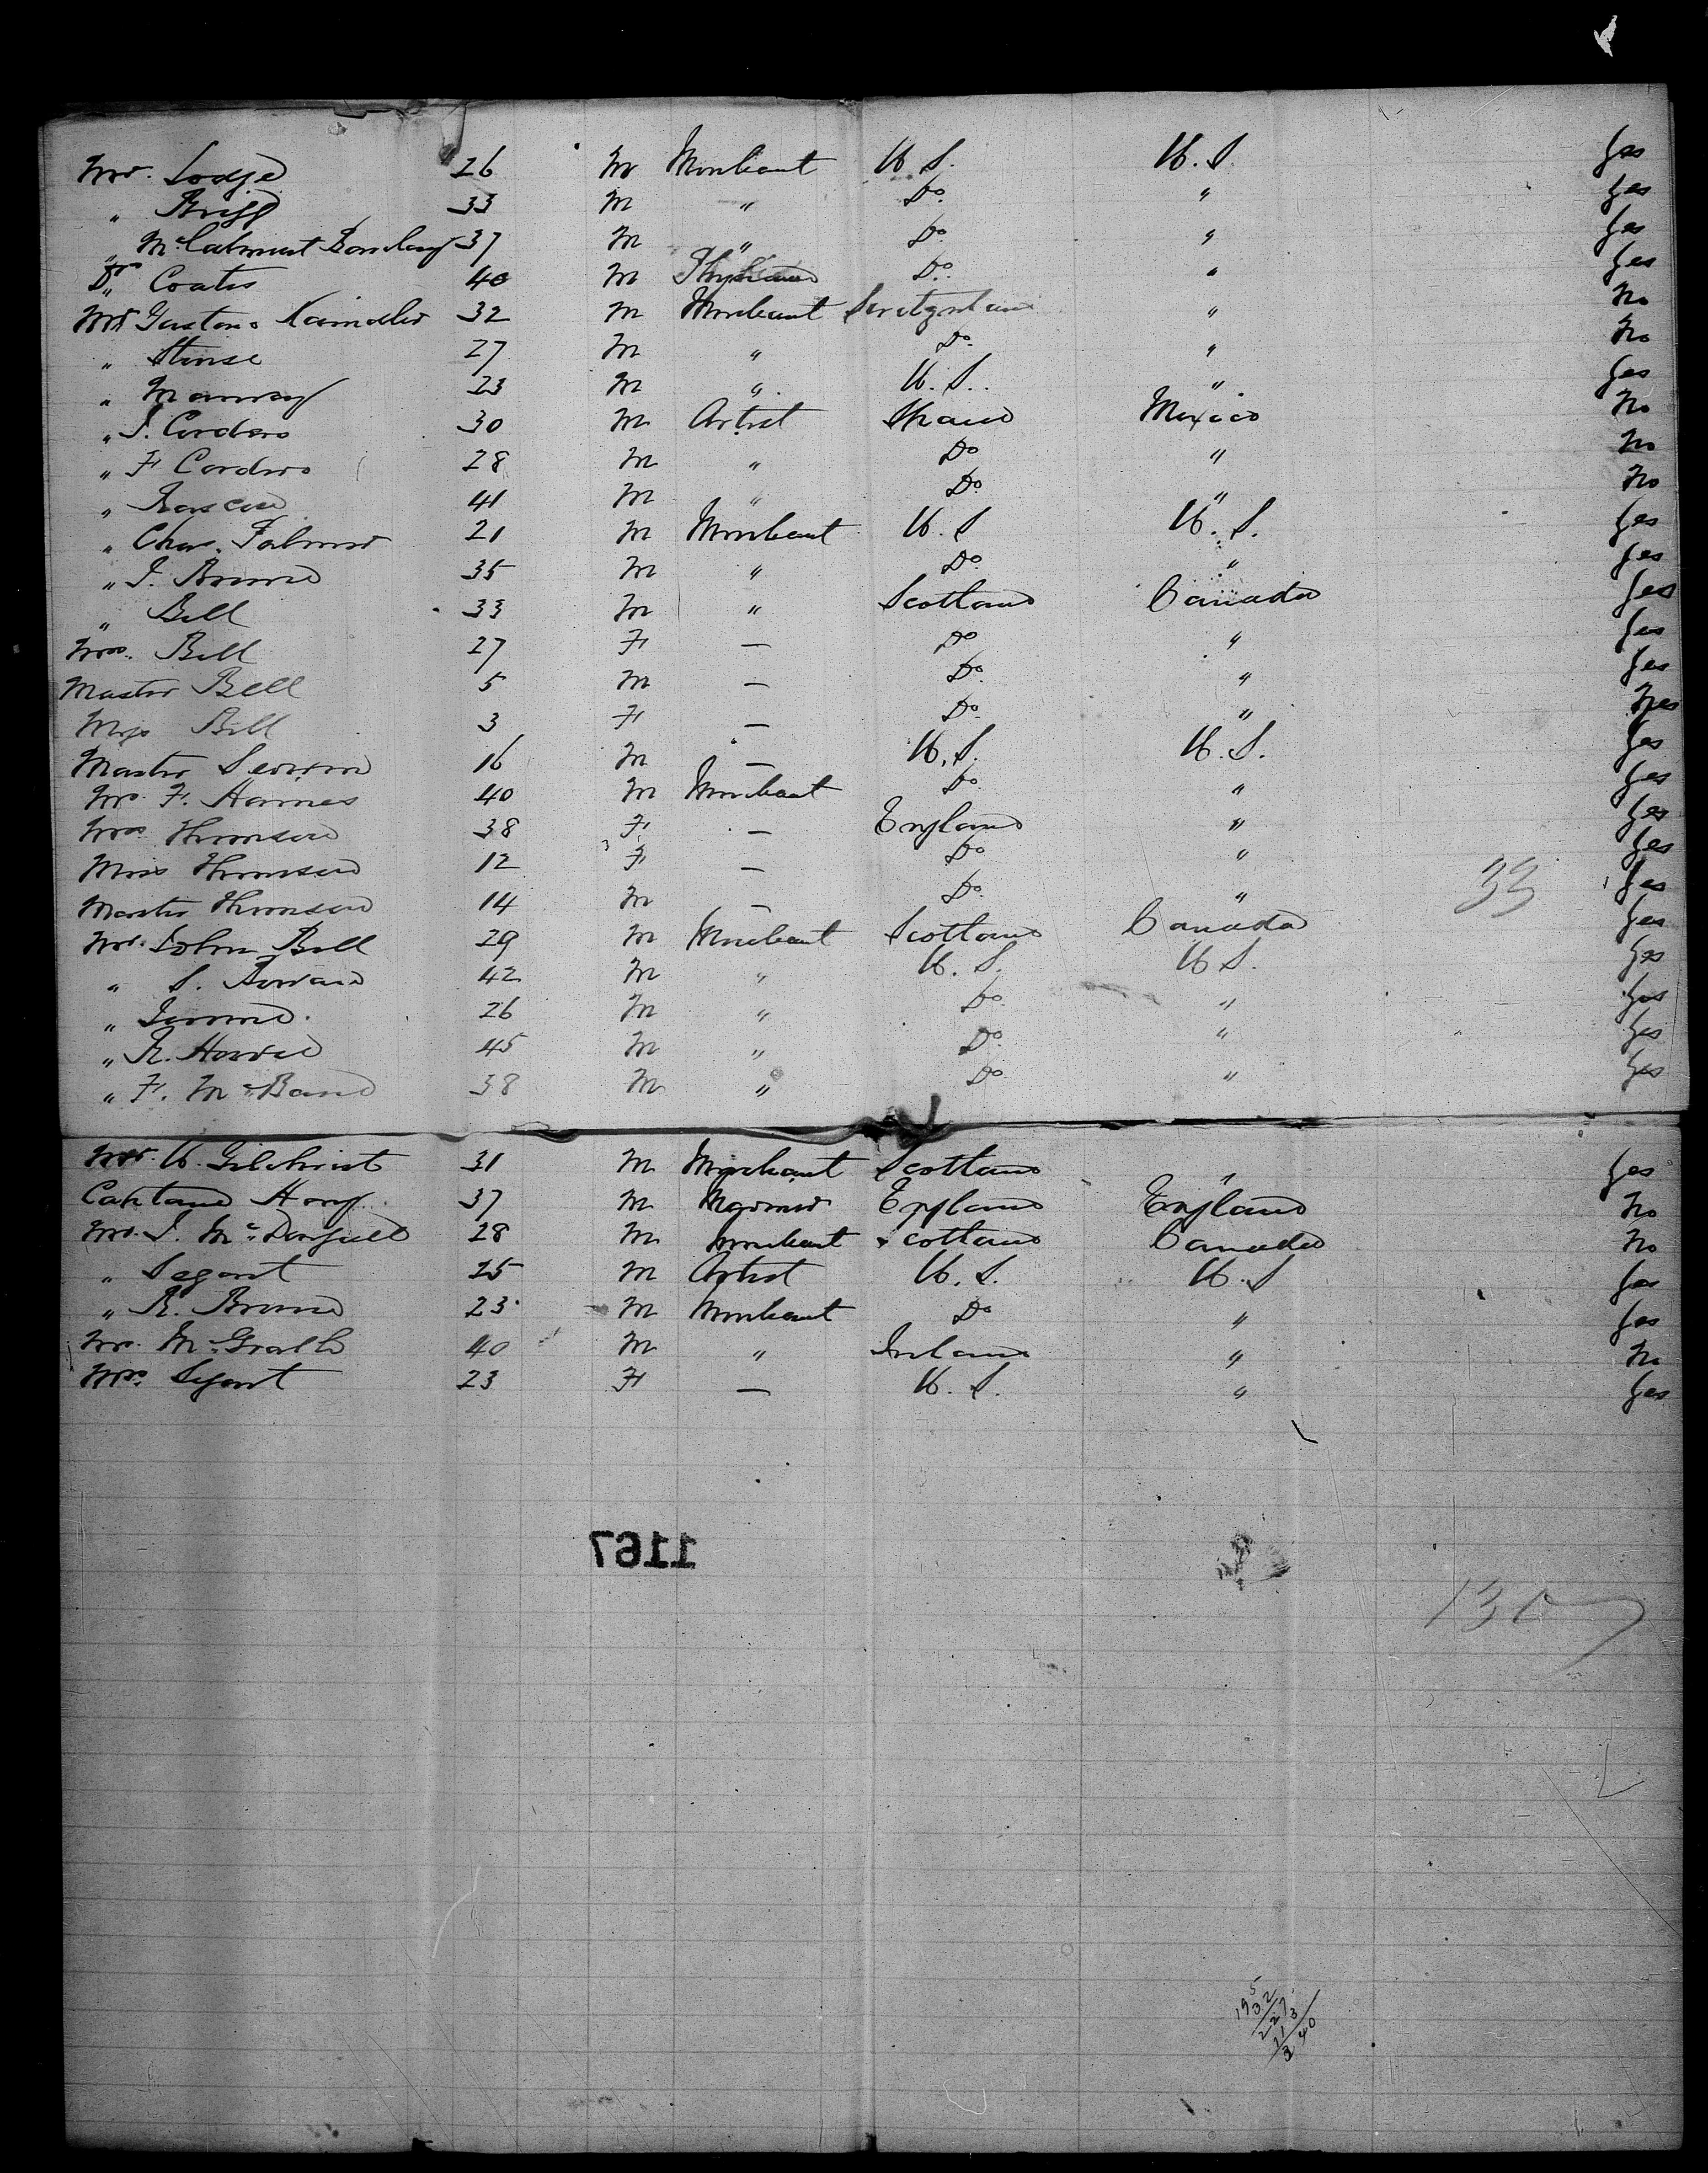 Mr. Lodge 26 M Merchant U.S. U.S. Yes
" Brigg 33 M " Do. " Yes
" McCalmont 37 M " Do. " Yes
Dr. Coates 40 M Physician Do. " Yes
Mr. Gustono 32 M Merchant Switzerland " No
" Stinse 27 M " Do. " No
" Manway 23 M " U.S. " Yes
" J. Cordero 30 M Artist Spain Mexico No
" F Cordero 28 M " Do " No
" 41 M " Do. " No
" Chas. Palmer 21 M Merchant U.S U.S. Yes
" J. Brown 35 M " Do. " Yes
" Bell 33 M " Scotland Canada Yes
Mrs. Bell 27 F — Do " Yes
Master Bell 5 M — Do. " Yes
Miss Bell 3 F — Do. " Yes
Master 16 M — U.S. U.S. Yes
Mr. F. Haines 40 M Merchant Do. " Yes
Mrs Thomson 38 F. — England " Yes
Miss Thomson 12 F — Do " Yes
Master Thomson 14 M — Do. " 33 Yes
Mr. John Bell 29 M Merchant Scotland Canada Yes
" S. 42 M " U.S. U S. Yes
" Jerome. 26 M " Do. " Yes
" R. 45 M " Do. " Yes
" F. McBand 38 M " Do. " Yes
Mr. U. Gilchrist 31 M Merchant Scotland " Yes
Captain 37 M Mariner England England No
Mr. J. McDougall 28 M Merchant Scotland Canada No
" Segart 25 M Artist U.S. U.S Yes
" R. Brown 23 M Merchant Do " Yes
Mr. McGrath 40 M " Ireland " No
Mrs. Segart 23 F — U.S. " Yes
1167